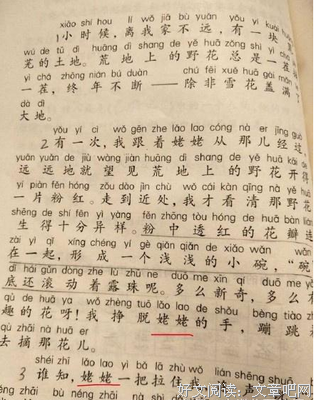 xiǎo shí hou lí wǒ jiā bù yuǎn yǒu yí kuài
1小时候，离我家不远，有一块
wú de tǔ dì huāng dì shang de yě huā zǒng shì yì
芜的土地。荒地上的野花总是一茬
yì chá zhōng nián bú duàn chú fēi xuě huā gài mǎn
一茬，终年不断——除非雪花盖满了
dà dì
大地。
yǒu yí cì wǒ gēn zhe lǎo lao cóng nà er jīng guò
2有一次，我跟着姥姥从那儿经过，
yuǎn yuǎn de jiù wàng jiàn huāng dì shang de yě huā kāi de
远远地就望见荒地上的野花开得
yí piàn fěn hóng zǒu dào jìn chù wǒ cái kàn qīng nà yě
一片粉红。走到近处，我才看清那野花
shēng de shí fēn yì yàng fěn zhōng tòu hóng de huā bàn lián
生得十分异样。粉中透红的花瓣连
zài yì qǐ xíng chéng yí gè qiǎn qiǎn de xiǎo wǎn wǎn
在一起，形成一个浅浅的小碗，“碗”
dǐ hái gǔn dòng zhe lù zhū ne duō me xīn qí duō me yǒu
底还滚动着露珠呢。多么新奇，多么有
qù de huā ya wǒ zhèng tuō lǎo lao de shǒu bèng tiào zhe
趣的花呀！我挣脱姥姥的手，蹦跳着
qù zhāi nà huā er
去摘那花儿。
shéi zhī lǎo lao yì bǎ lā zhù wǒ lián shēng shuō
3谁知，姥姥一把拉住